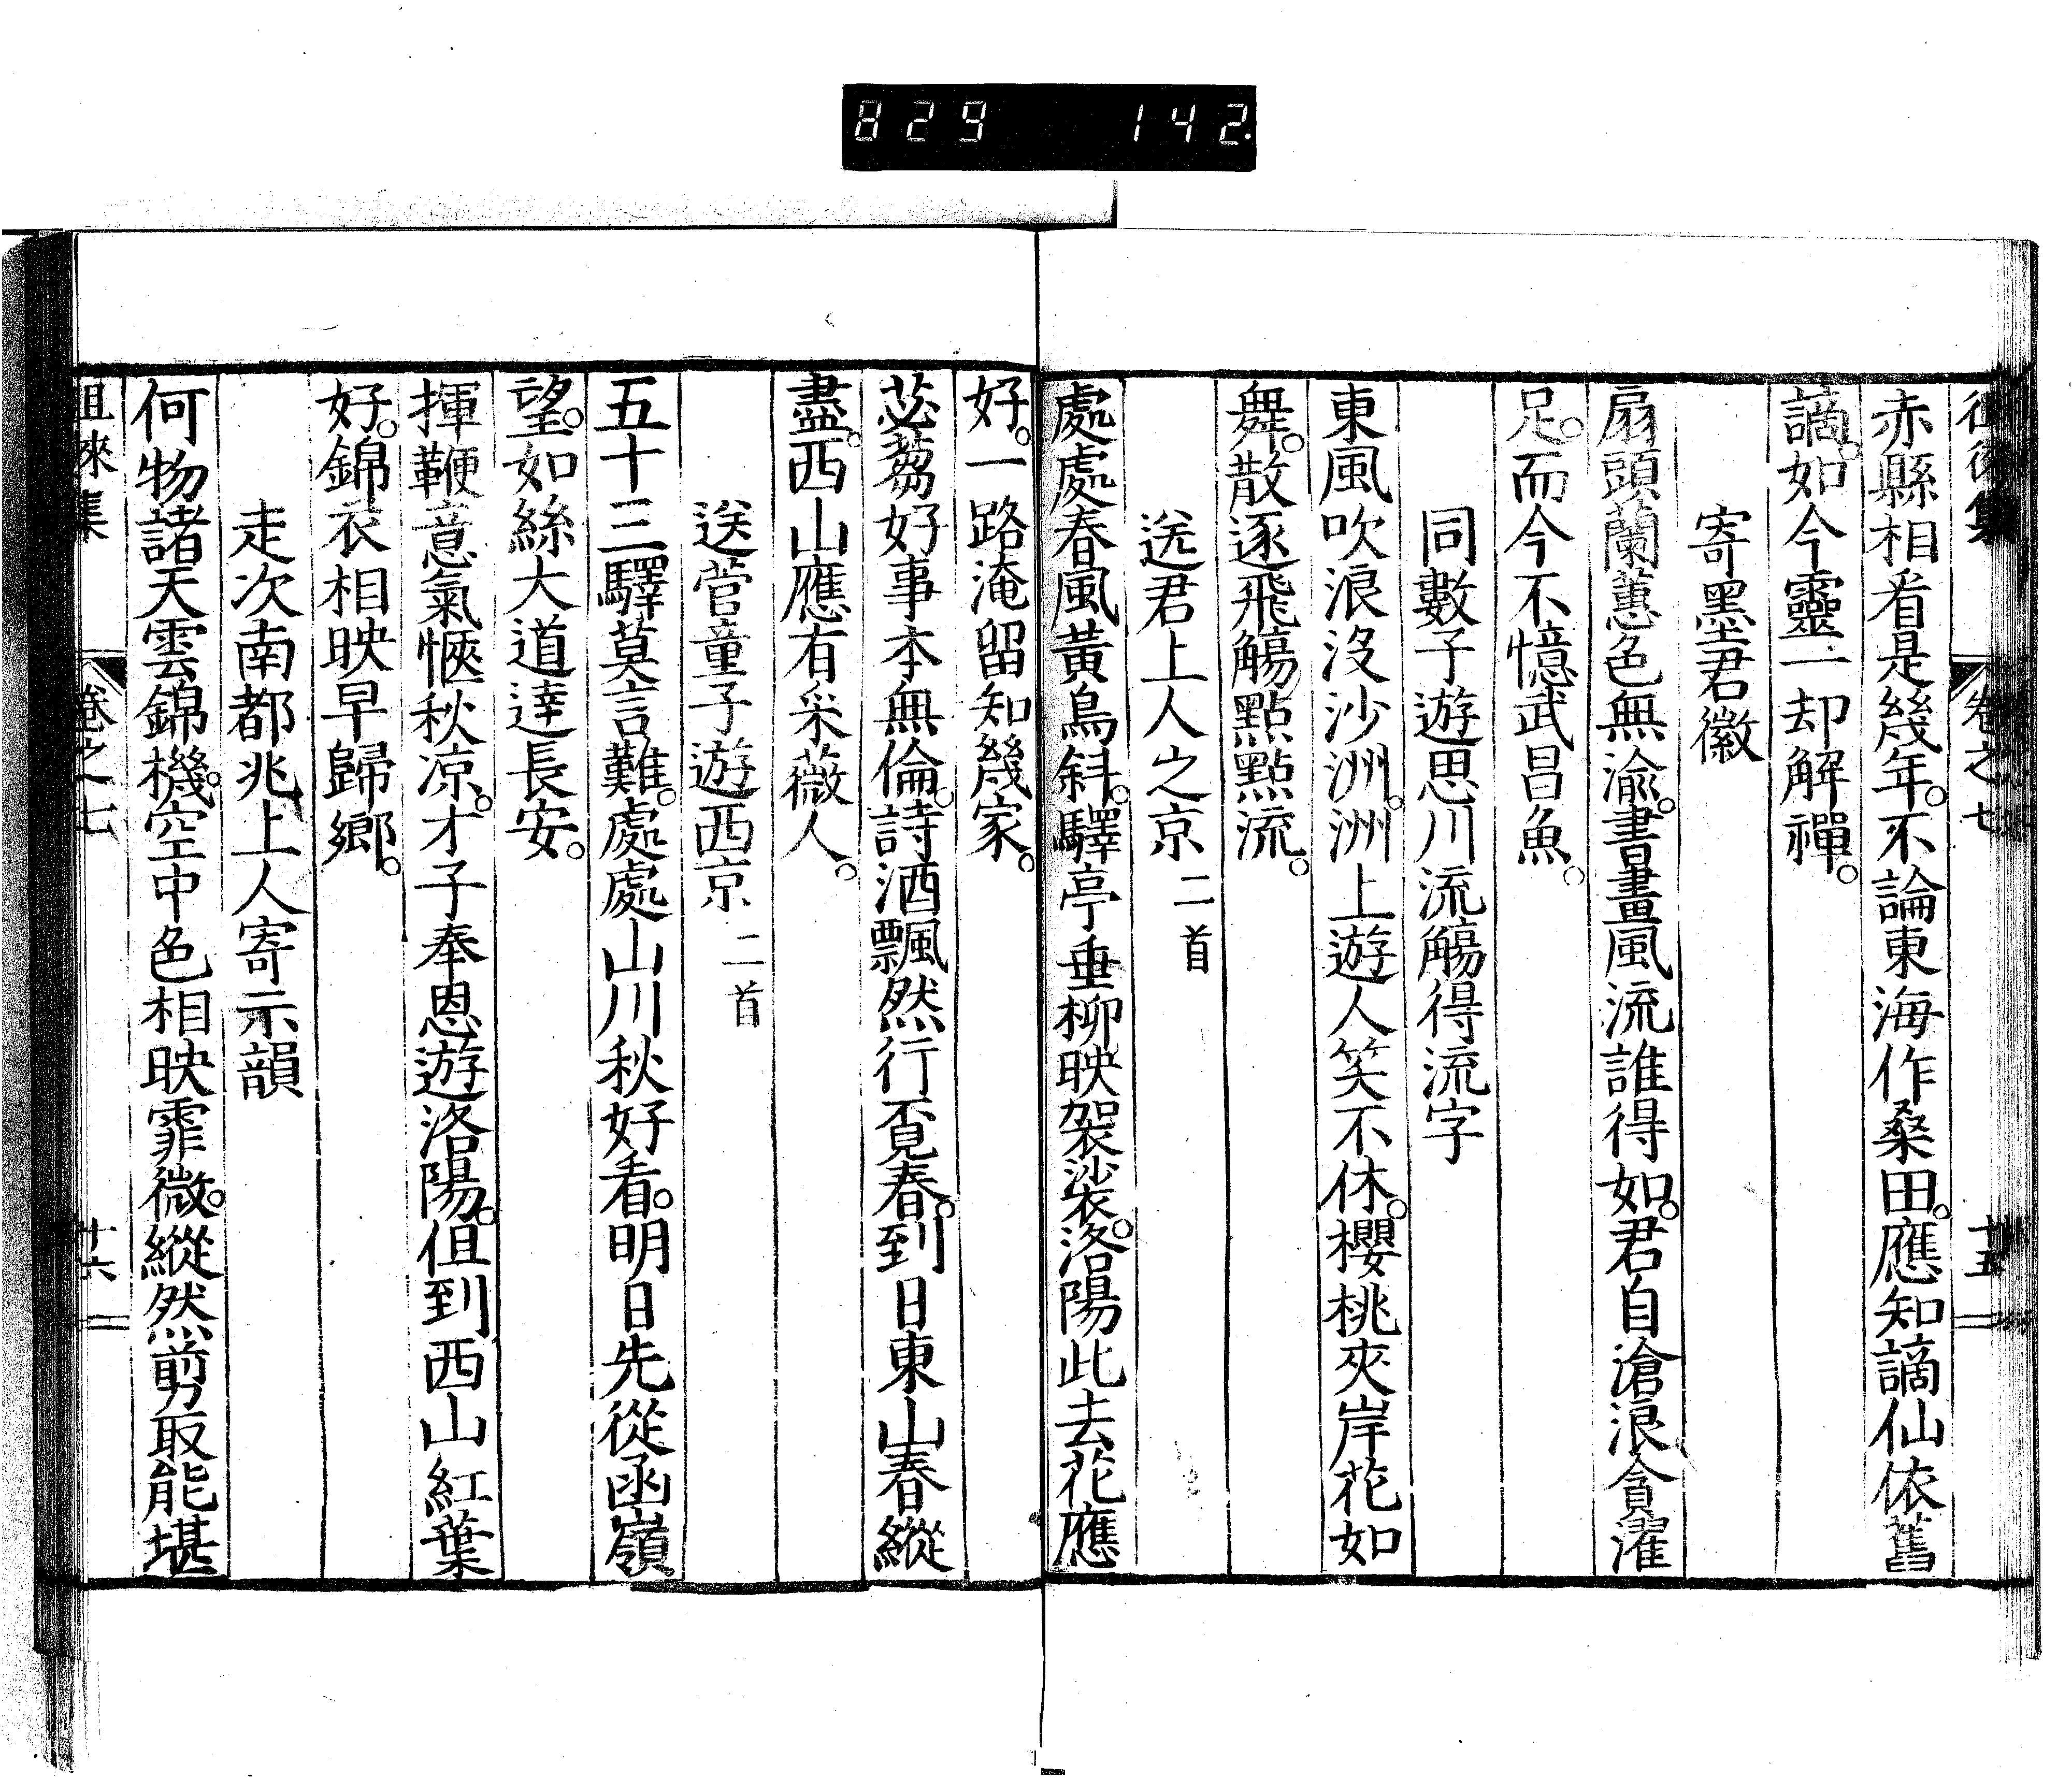 829 142.
徂徠集 卷之七 十五
赤縣相看是幾年。不論東海作桑田。應知謫仙依舊
謫。如今靈一却解禪。
寄墨君徽
扇頭蘭蕙色無渝。書畫風流誰得如。君自滄浪貪濯
足。而今不憶武昌魚。
同數子遊思川流觴得流字
東風吹浪沒沙洲。洲上遊人笑不休。櫻桃夾岸花如
舞。散逐飛觴點點流。
送君上人之京 二首
處處春風黃鳥斜。驛亭垂柳映袈裟。洛陽此去花應
好。一路淹留知幾家。
苾蒭好事本無倫。詩酒飄然行覔春。到日東山春縱
盡。西山應有采薇人。
送菅童子遊西京 二首
五十三驛莫言難。處處山川秋好看。明日先從函嶺
望。如絲大道達長安。
揮鞭意氣愜秋凉。才子奉恩遊洛陽。但到西山紅葉
好。錦衣相映早歸鄉。
走次南都兆上人寄示韻
何物諸天雲錦機。空中色相映霏微。縱然剪取能堪
徂徠集 卷之七 十六